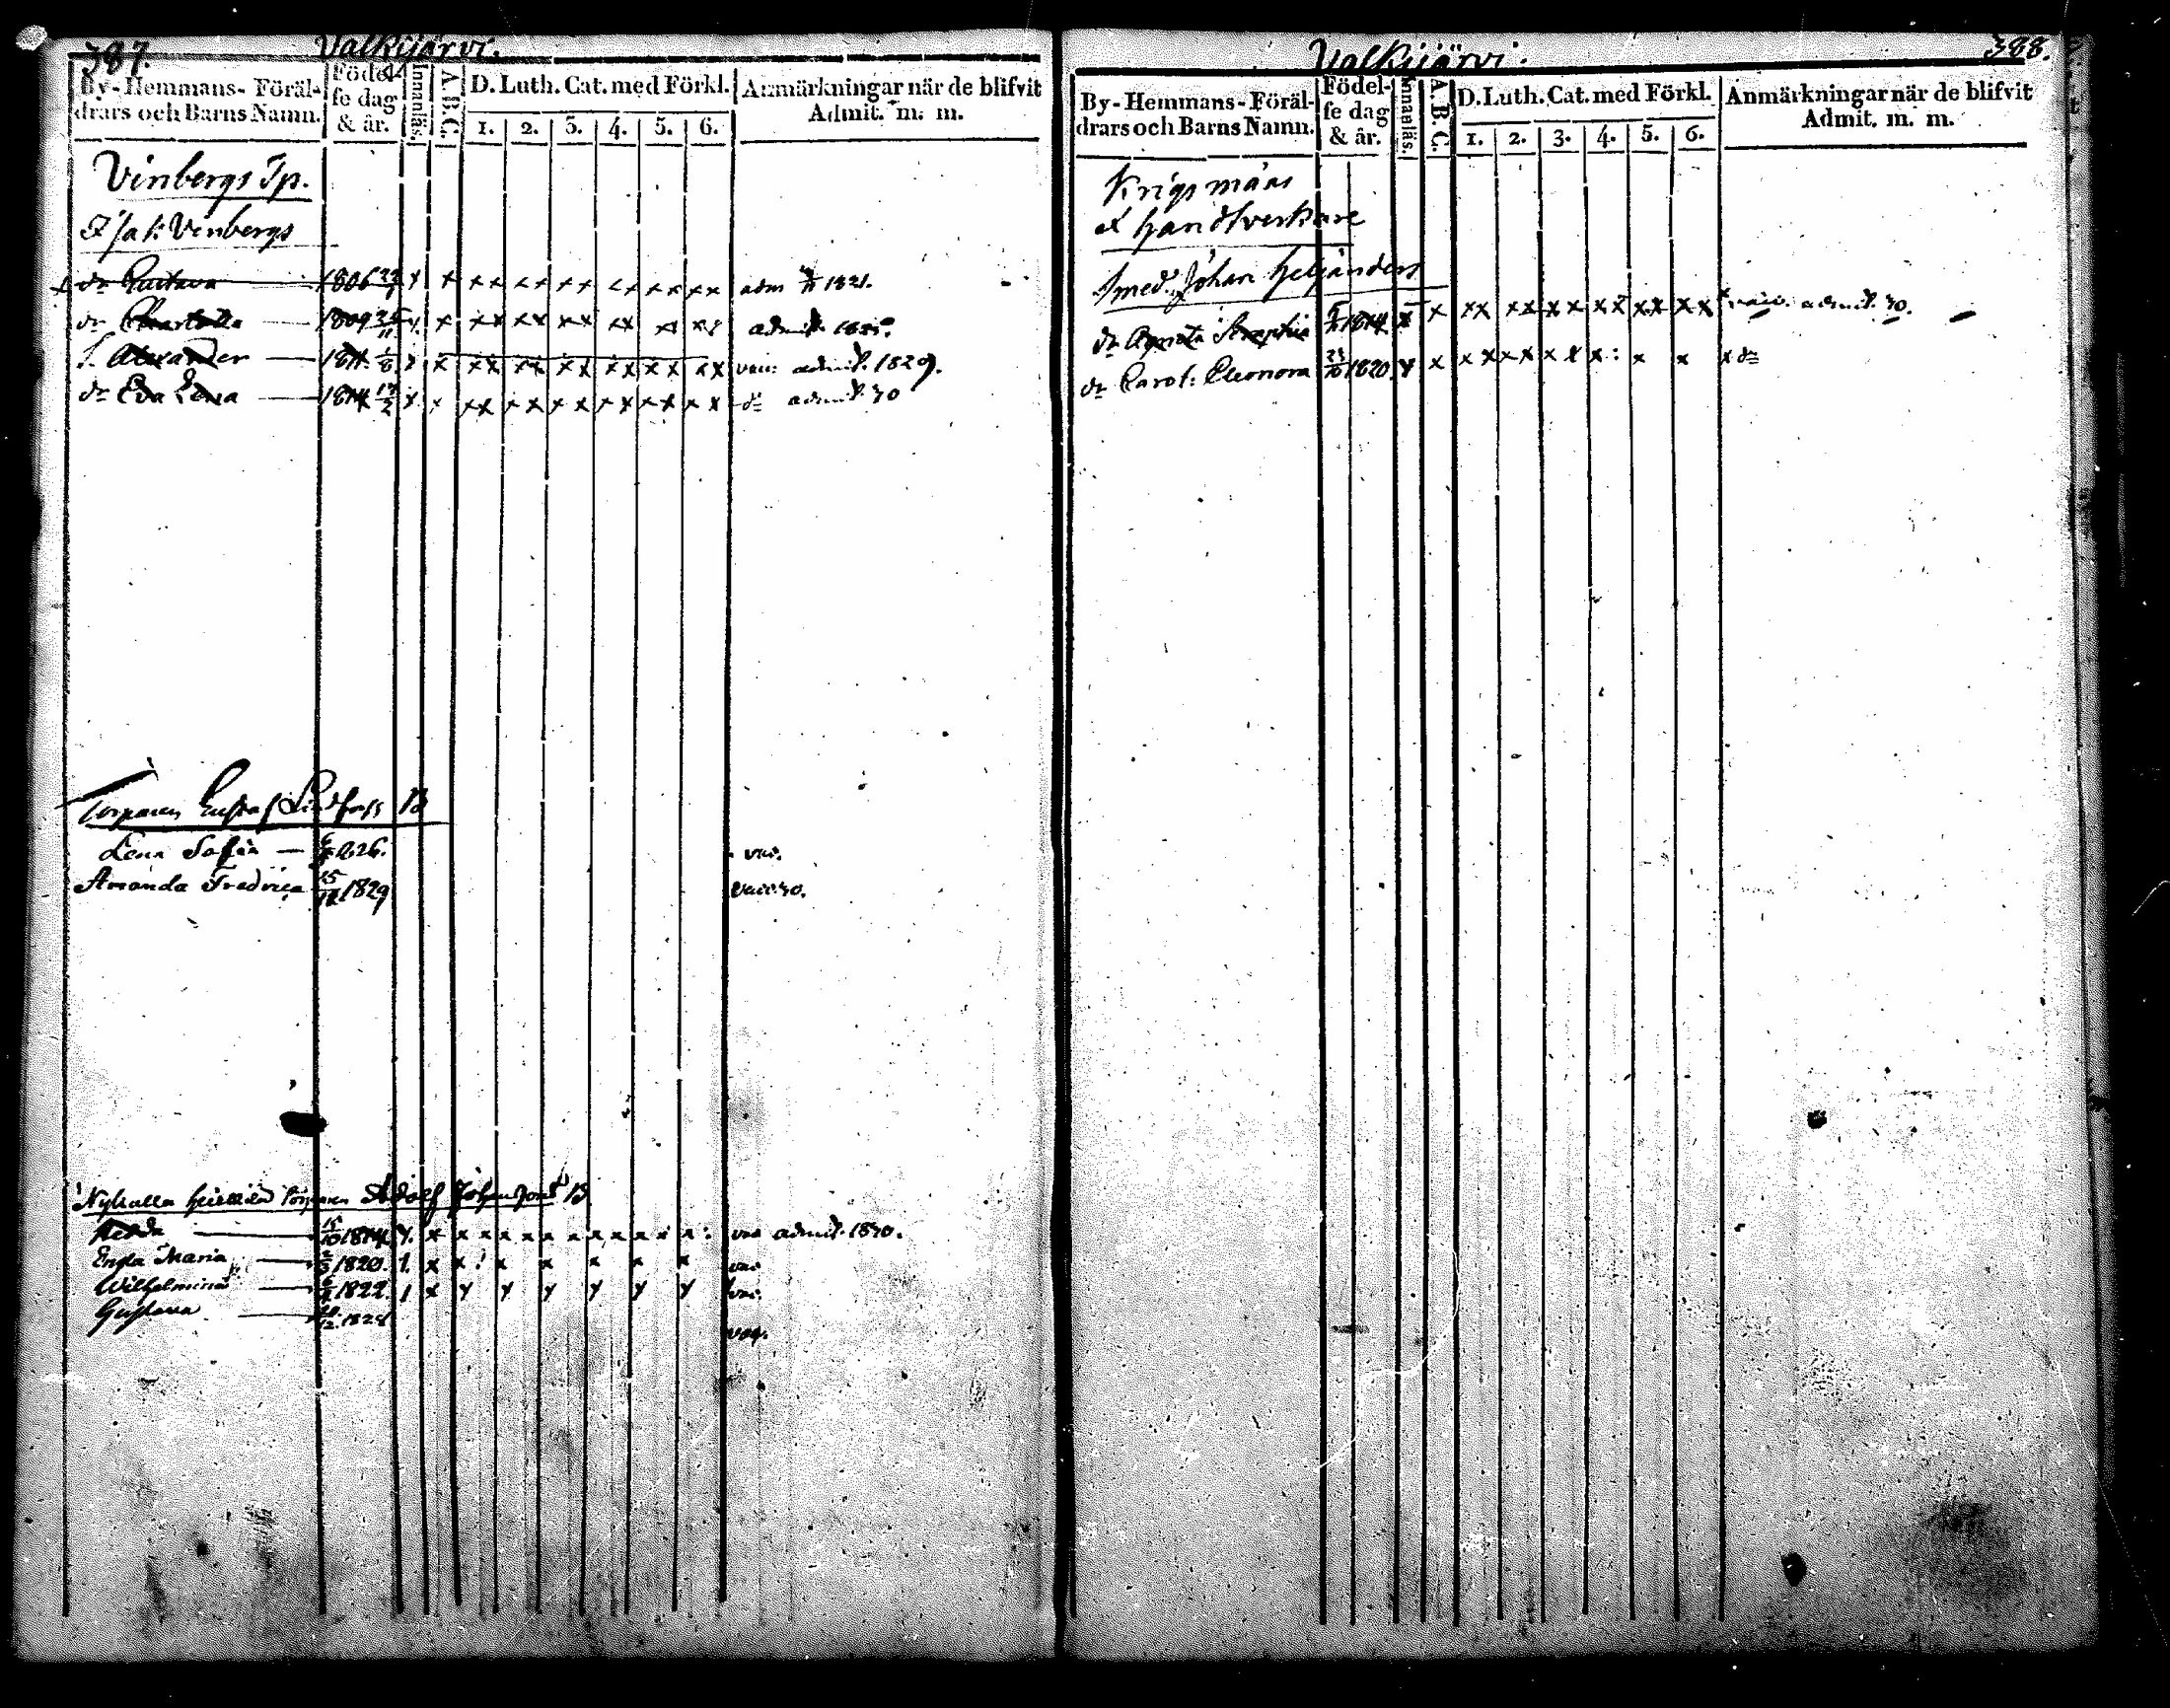 387.
Valkijärvi.
By-Hemmans-Föräl-
drars och Barns Namn.
Födel-
se dag
& år.
Innanläs.
A.B.C.
D. Luth. Cat. med Förkl.
1. 2. 3. 4. 5. 6.
Anmärkningar när de blifvit
Admit. m. m.
Vinbergs Tp.
Jak: Vinbergs
dr Gustava 1806 x x xx xx xx xx xx xx adm 1821.
dr 1809 x xx xx xx xx admit.
S. Alexander 1811 x x xx xx xx xx xx xx vac: admit. 1829.
dr Eva Lena 1814 x x xx xx xx xx xx xx do admit. 30
Torparen Gustaf Lindfors B
Lena Sofia — 1826. vac.
Amanda Fredrica 15/12 1829 vac: 30.
Torparen Adolf Johansons B
Hedda 15/10 1814 x x x x x x x x x x x x vac admit. 1830.
Maria 1820. 1 x x x x x x x vac
Wilhelmina 1822. 1 x y y y y y y vac.
Gustava 1828 vac.
388.
Valkijärvi.
By-Hemmans-Föräl-
drars och Barns Namn.
Födel-
se dag
& år.
Innanläs.
A.B.C.
D. Luth. Cat. med Förkl.
1. 2. 3. 4. 5. 6.
Anmärkningar när de blifvit
Admit. m. m.
Krigsmäns
& Handtverkare
Smed. Johan Heljanders
dr 1814 x x xx xx xx xx xx xx vac. admit. 30.
dr Carol: Eleonora 23/10 1820. x x x x x x x x x: x x x do